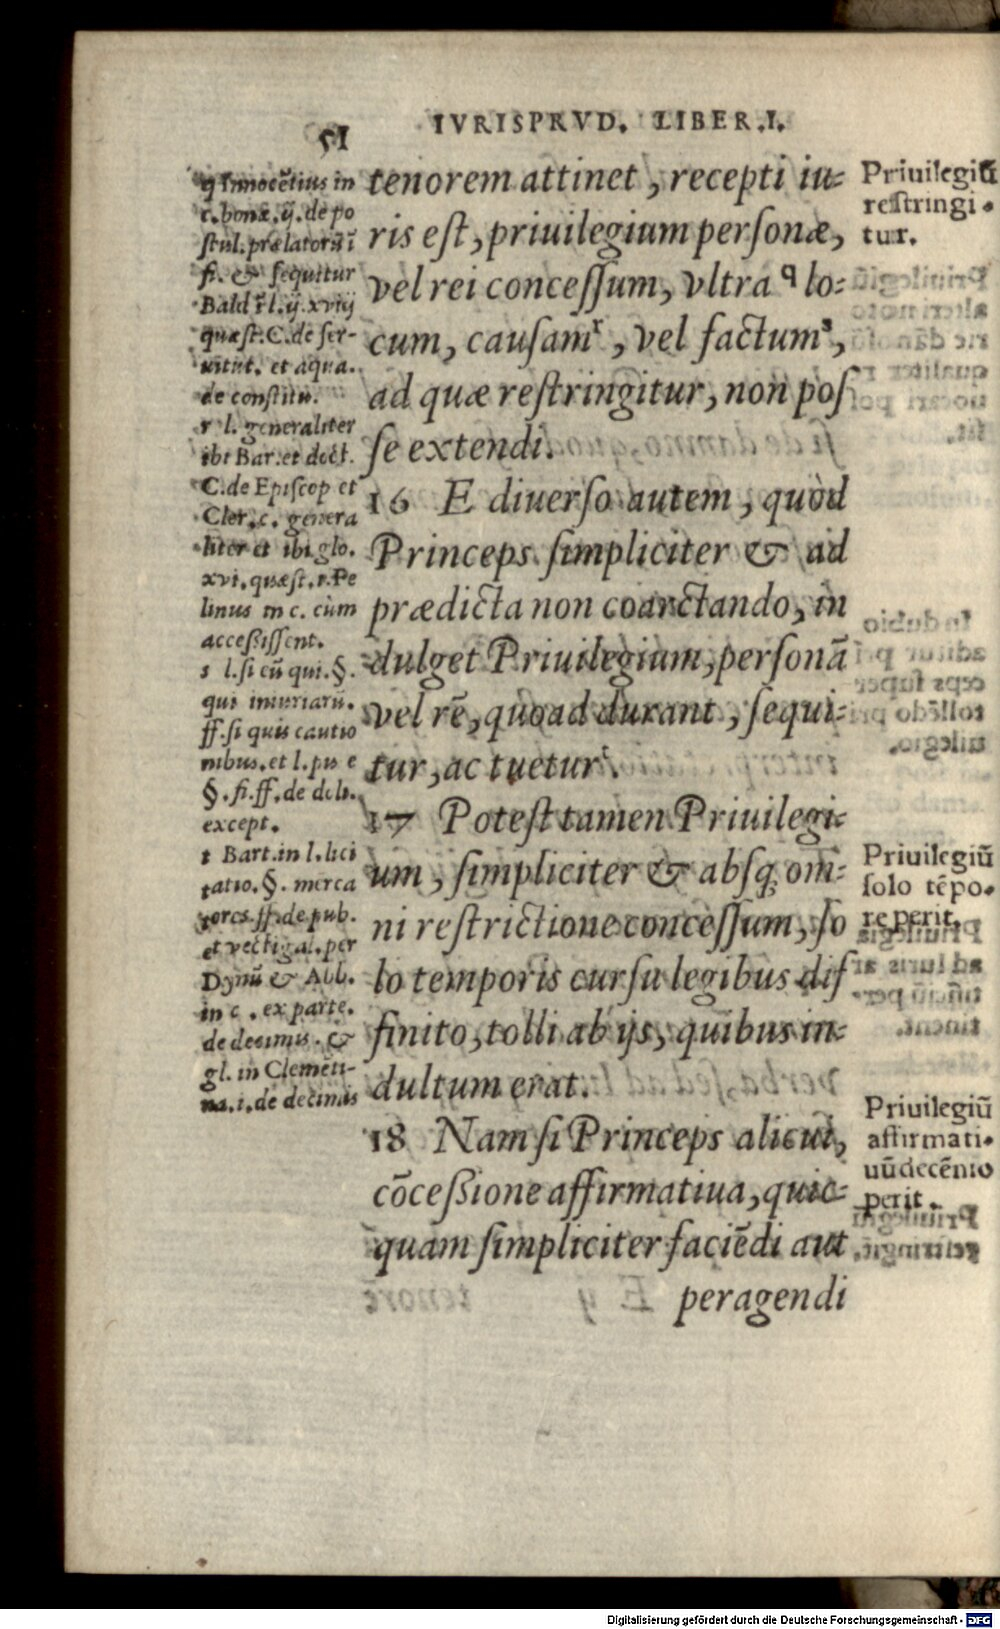 51
IVRISPRVD. LIBER.I.
q Innocētius in
c.bonæ.ij.de po
stul.prælatorū ī
fi. & sequitur
Bald ī l.ij.xviij
quæst.C.de ser-
uitut. et aqua.
de constitu.
r l. generaliter
ibi Bar.et doct.
C.de Episcop et
Cler.c. genera
liter et ibi glo.
xvi.quæst.1.Pe
linus in c. cùm
accessissent.
s l.si cū qui.§.
qui iniuriarū.
ff.si quis cautio
nibus.et l.pis e
§.fi.ff.de dolo.
except.
t Bart.in l.lici
tatio.§. merca
tores.ff.de pub.
et vectigal.per
Dynū & Abb.
in c . ex parte.
de decimis. &
gl. in Clemēti-
na.1.de decimis
tenorem attinet, recepti iu-
ris est, priuilegium personæ,
vel rei concessum, vltra q lo-
cum, causam r, vel factum s,
ad quæ restringitur, non pos
se extendi.
16 E diuerso autem, quòd
Princeps simpliciter & ad
prædicta non coarctando, in
dulget Priuilegium, personā
vel rē, quoad durant, sequi-
tur, ac tuetur t.
17 Potest tamen Priuilegi-
um, simpliciter & absq; om-
ni restrictione concessum, so
lo temporis cursu legibus dif
finito, tolli ab ijs, quibus in-
dultum erat.
18 Nam si Princeps alicui,
cōcessione affirmatiua, quic-
quam simpliciter faciēdi aut
peragendi
Priuilegiū
restringi-
tur.
Priuilegiū
solo tēpo-
re perit.
Priuilegiū
affirmati-
uū decēnio
perit.
Digitalisierung gefördert durch die Deutsche Forschungsgemeinschaft - DFG